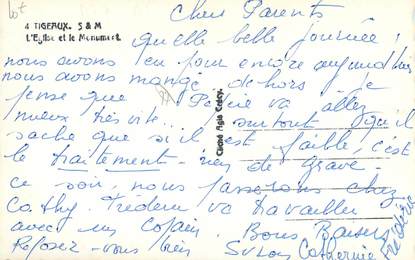 Lot
4 TIGEAUX. S & M
L'Eglise et le Monument
Chers Parents
quelle belle journée !
nous avons eu four encore aujourd'hui
nous avons mangé dehors je
pense que va aller
mieux très vite... surtout qu'il
sache que si il est faible, c'est
le traitement rien de grave.
ce soir, nous passerons chez
Cathy. va travailler
avec un copain. Bons Baisers
Reposez-vous bien Catherine
Frédéric
Cliché Agia Crécy.